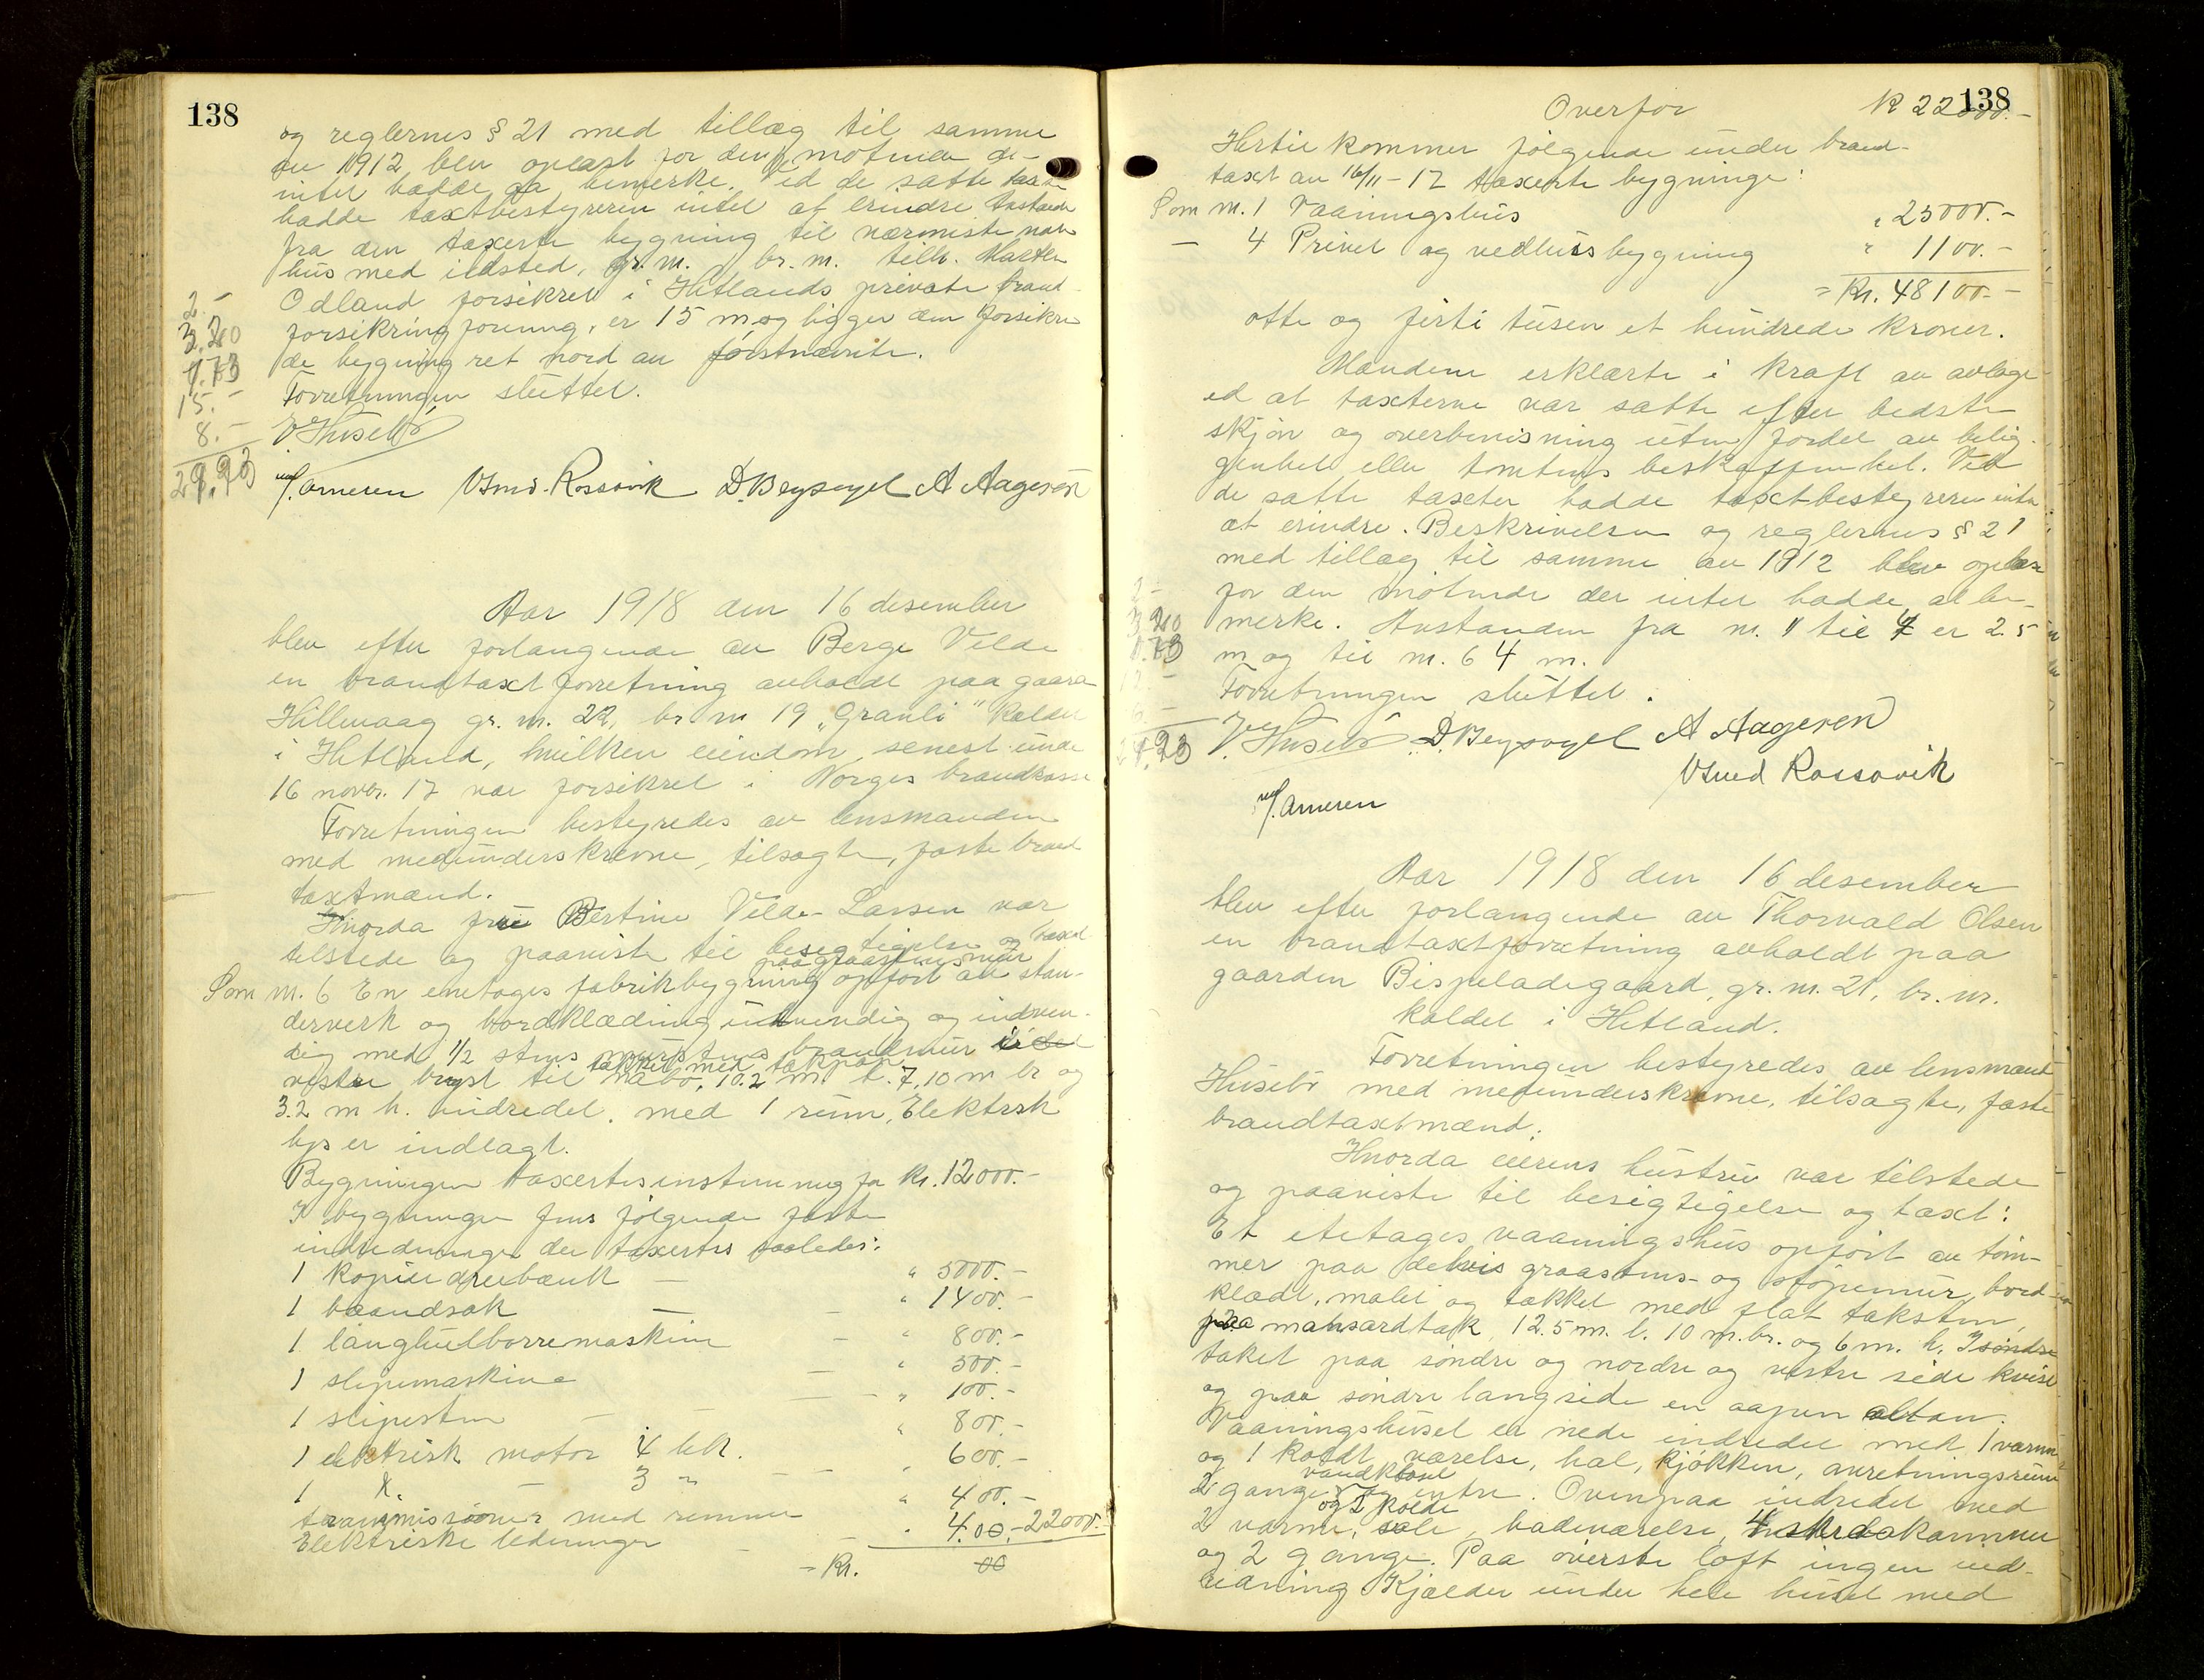 138
og reglernes § 21 med tillæg til samme
av 1912 blev oplæst for den møtende der
intet hadde at bemerke. Ved de satte takster
hadde taxtbestyreren intet at erindre Avstanden
fra den taxerte bygning til nærmeste nabo
hus med ildsted, gr. nr. br. nr. tilh.
Odland forsikret i Hetlands private brand-
forsikringforening, er 15 m og ligger den forsikre
de bygning ret nord av førstnævnte.
Forretningen sluttet.
2.-
3.20
1.73
15.-
8.-
29.93
V Husebø
Arnesen Osmd. Rossavik D. Bergsagel A Aagesen
Aar 1918 den 16 desember
blev efter forlangende av Berge Velde
en brandtaxtforretning avholdt paa gaarden
Hillevaag gr. nr. 22, br nr 19 "Granli" kaldet
i Hetland, hvilken eiendom senest under
16 novbr. 17 var forsikret i Norges brandkasse
Forretningen bestyredes av lensmanden
med medunderskrevne, tilsagte, faste brand
taxtmænd.
Hvorda fru Bertine Velde-Larsen var
tilstede og paaviste til besigtigelse og taxt
paa graastensmur
Som nr. 6 En enetages fabrikbygning opført av stan-
derverk og bordklædning utvendig og indven-
dig med 1/2 stens murstens brandmur
tækket med takpan
vestre bryst til nabo, 10.2 m l. 7,10 m br og
3.2 m h. indredet med 1 rum, Elektrisk
lys er indlagt.
Bygningen taxertes enstemmig for kr. 12000.-
I bygningen fins følgende faste
indredninger der taxertes saaledes:
1 kopierdreibænk " 5000.-
1 baandsak - " 1400.-
1 langhulborremaskine - " 800.-
1 slipemaskine - " 500.-
1 slipesten - " 100.-
1 elektrisk motor 4 hk. " 800.-
1 " 3 " - " 600.-
transmissioner med remmer " 400.-
Elektriske ledninger - " 400.- 22000.-
= Kr. 00
138
Overfør K 22000.-
Hertil kommer følgende under brand-
taxt av 16/11-17 taxerte bygninge:
Som nr. 1 Vaaningshus " 25000.-
— 4 Privet og vedhusbygning " 1100.-
= Kr. 48100.-
otte og førti tusen et hundrede kroner.
Mændene erklærte i kraft av avlagt
ed at taxterne var satte efter bedste
skjøn og overbevisning uten fordel av belig-
genhet eller tomtens beskaffenhet. Ved
de satte taxter hadde taxtbestyreren intet
at erindre. Beskrivelsen og reglernes § 21
med tillæg til samme av 1912 blev oplæst
for den møtende der intet hadde at be-
merke. Avstanden fra nr. 1 til 4 er 2.5
m og til nr. 6 4 m.
Forretningen sluttet.
2.-
3.20
1.73
6.-
24.93
V. Husebø D. Bergsagel A Aagesen
Osmd Rossavik
Arnesen
Aar 1918 den 16 desember
blev efter forlangende av Thorvald Olsen
en brandtaxtforretning avholdt paa
gaarden Bispeladegaard, gr. nr. 21, br. nr.
kaldet i Hetland.
Forretningen bestyredes av lensmand
Husebø med medunderskrevne, tilsagte, faste
brandtaxtmænd.
Hvorda eierens hustru var tilstede
og paaviste til besigtigelse og taxt:
Et etetages vaaningshus opført av tøm-
mer paa delvis graastens- og støpemur, bord-
klædt, malet og tækket med flat taksten,
paa mansardtak, 12.5 m. l. 10 m. br. og 6 m. h. I søndre
taket paa søndre og nordre og vestre side kvist
og paa søndre langside en aapen altan.
Vaaningshuset er nede indredet med 1 varmt
og 1 koldt værelse, hal, kjøkken, anretningsrum
vandklosel
2 gange og entre. Ovenpaa indredet med
og 2 kolde
2 varme, sale, badeværelse, 4 kammer
og 2 gange. Paa øverste loft ingen ind-
redning Kjælder under hele huset med